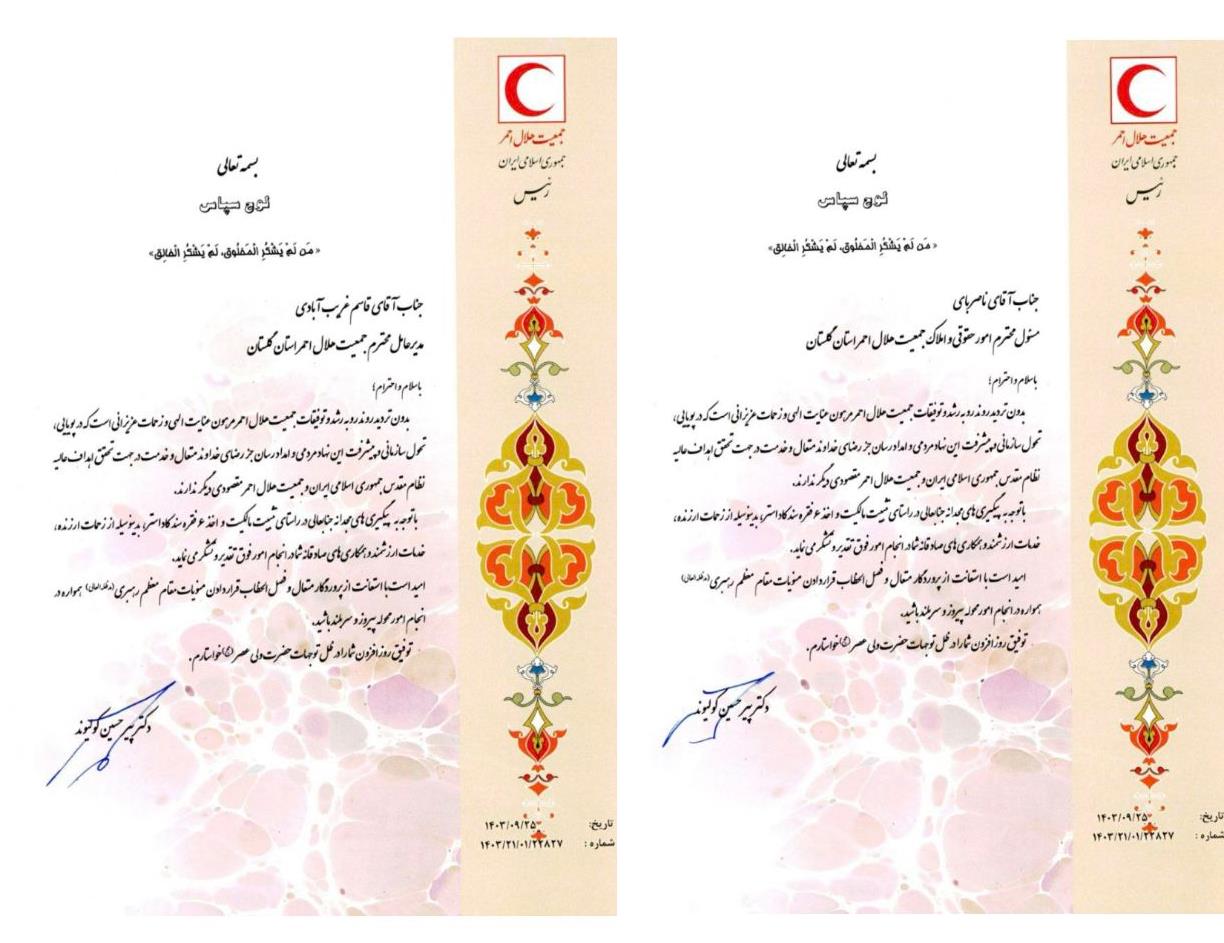 جمعیت هلال احمر
جمهوری اسلامی ایران
رئیس
بسمه تعالی
لوح سپاس
« مَن لَمْ یَشْکُرِ الْمَخلُوق، لَمْ یَشْکُرِ الْخالِق»
جناب آقای ناصر بای
مسئول محترم امور حقوقی و املاک جمعیت هلال احمر استان گلستان
باسلام و احترام؛
بدون تردید روند رو به رشد و توفیقات جمعیت هلال احمر مرهون عنایت الهی و زحمات عزیزانی است که در پویایی،
تحول سازمانی و پیشرفت این نهاد مردمی و امدادرسان جز رضای خداوند متعال و خدمت در جهت تحقق اهداف عالیه
نظام مقدس جمهوری اسلامی ایران و جمعیت هلال احمر مقصودی دیگر ندارند.
باتوجه به پیگیری های مجدانه جنابعالی در راستای تثبیت مالکیت و اخذ ۶ فقره سند کاداستر، بدینوسیله از زحمات ارزنده،
خدمات ارزشمند و همکاری های صادقانه شما در انجام امور فوق تقدیر و تشکر می نماید.
امید است با استعانت از پروردگار متعال و فصل الخطاب قراردادن منویات مقام معظم رهبری (مدظله العالی)
همواره در انجام امور محوله پیروز و سربلند باشید.
توفیق روزافزون شما را در ظل توجهات حضرت ولی عصر (عج) خواستارم.
دکتر پیرحسین کولیوند
تاریخ: ۱۴۰۳/۰۹/۲۵
شماره : ۱۴۰۳/۲۱/۰۱/۲۲۸۲۷
جمعیت هلال احمر
جمهوری اسلامی ایران
رئیس
بسمه تعالی
لوح سپاس
« مَن لَمْ یَشْکُرِ الْمَخلُوق، لَمْ یَشْکُرِ الْخالِق»
جناب آقای قاسم غریب آبادی
مدیرعامل محترم جمعیت هلال احمر استان گلستان
باسلام و احترام؛
بدون تردید روند رو به رشد و توفیقات جمعیت هلال احمر مرهون عنایت الهی و زحمات عزیزانی است که در پویایی،
تحول سازمانی و پیشرفت این نهاد مردمی و امدادرسان جز رضای خداوند متعال و خدمت در جهت تحقق اهداف عالیه
نظام مقدس جمهوری اسلامی ایران و جمعیت هلال احمر مقصودی دیگر ندارند.
باتوجه به پیگیری های مجدانه جنابعالی در راستای تثبیت مالکیت و اخذ ۶ فقره سند کاداستر، بدینوسیله از زحمات ارزنده،
خدمات ارزشمند و همکاری های صادقانه شما در انجام امور فوق تقدیر و تشکر می نماید.
امید است با استعانت از پروردگار متعال و فصل الخطاب قراردادن منویات مقام معظم رهبری (مدظله العالی) همواره در
انجام امور محوله پیروز و سربلند باشید.
توفیق روزافزون شما را در ظل توجهات حضرت ولی عصر (عج) خواستارم.
دکتر پیرحسین کولیوند
تاریخ: ۱۴۰۳/۰۹/۲۵
شماره : ۱۴۰۳/۲۱/۰۱/۲۲۸۲۷